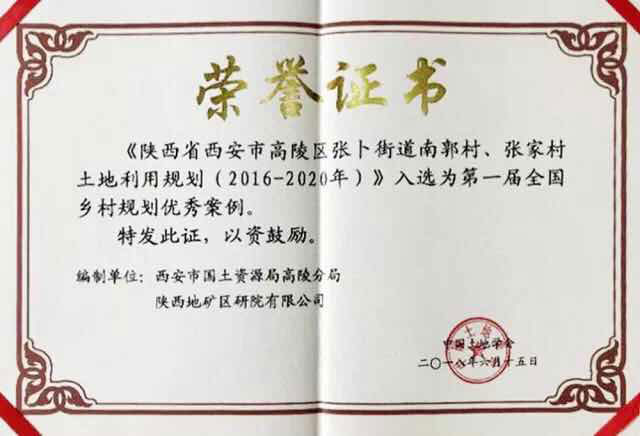 荣誉证书
《陕西省西安市高陵区张卜街道南郭村、张家村
土地利用规划（2016-2020年）》入选为第一届全国
乡村规划优秀案例。
特发此证，以资鼓励。
编制单位：西安市国土资源局高陵分局
陕西地矿区研院有限公司
中国土地学会
二〇一八年六月十五日